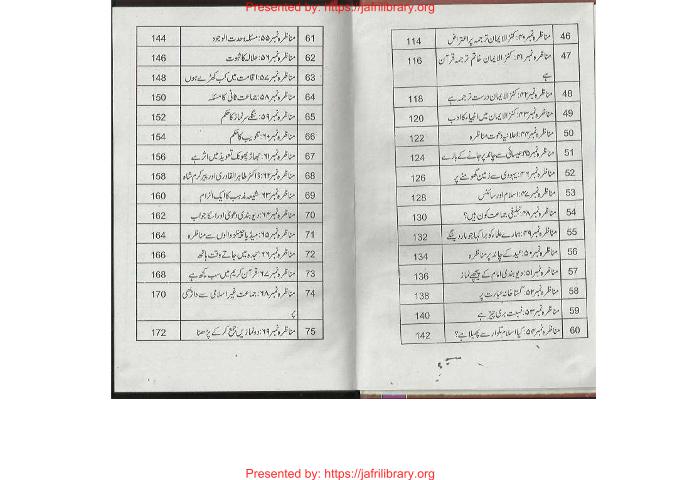 Presented by: https://jafrilibrary.org
46 مناظرہ نمبر ۴۰: کنز الایمان ترجمہ پر اعتراض 114
47 مناظرہ نمبر ۴۱: کنز الایمان خاتم ترجمہ قرآن 116
ہے
48 مناظرہ نمبر ۴۲: کنز الایمان درست ترجمہ ہے 118
49 مناظرہ نمبر ۴۳: کنز الایمان میں انبیاء کا ادب 120
50 مناظرہ نمبر ۴۴: اعلانیہ دعوت مناظرہ 122
51 مناظرہ نمبر ۴۵: عیسائی سے چاند پر جانے کے بارے 124
52 مناظرہ نمبر ۴۶: یہودی سے زمین گھومنے پر 126
53 مناظرہ نمبر ۴۷: اسلام اور سائنس 128
54 مناظرہ نمبر ۴۸: تبلیغی جماعت کون ہیں؟ 130
55 مناظرہ نمبر ۴۹: ہمارے علماء کو برا کہا جو مار دینگے 132
56 مناظرہ نمبر ۵۰: عید کے چاند پر مناظرہ 134
57 مناظرہ نمبر ۵۱: دیوبندی امام کے پیچھے نماز 136
58 مناظرہ نمبر ۵۲: گستاخانہ عبارت پر 138
59 مناظرہ نمبر ۵۳: نسبت بڑی چیز ہے 140
60 مناظرہ نمبر ۵۴: کیا اسلام تلوار سے پھیلا ہے؟ 142
61 مناظرہ نمبر ۵۵: مسئلہ وحدت الوجود 144
62 مناظرہ نمبر ۵۶: حلالہ کا ثبوت 146
63 مناظرہ نمبر ۵۷: اقامت میں کب کھڑے ہوں 148
64 مناظرہ نمبر ۵۸: جماعت ثانی کا مسئلہ 150
65 مناظرہ نمبر ۵۹: ننگے سر نماز کا حکم 152
66 مناظرہ نمبر ۶۰: تثویب کا حکم 154
67 مناظرہ نمبر ۶۱: جھاڑ پھونک تعویذ میں اثر ہے 156
68 مناظرہ نمبر ۶۲: ڈاکٹر طاہر القادری اور پیر کرم شاہ 158
69 مناظرہ نمبر ۶۳: شیعہ مذہب کا ایک الزام 160
70 مناظرہ نمبر ۶۴: دیوبندی دعویٰ اور اسکا جواب 162
71 مناظرہ نمبر ۶۵: میڈیا چینلز والوں سے مناظرہ 164
72 مناظرہ نمبر ۶۶: سجدہ میں جاتے وقت ہاتھ 166
73 مناظرہ نمبر ۶۷: قرآن کریم میں سب کچھ ہے 168
74 مناظرہ نمبر ۶۸: جماعت غیر اسلامی سے داڑھی 170
پر
75 مناظرہ نمبر ۶۹: دو نمازیں جمع کر کے پڑھنا 172
Presented by: https://jafrilibrary.org